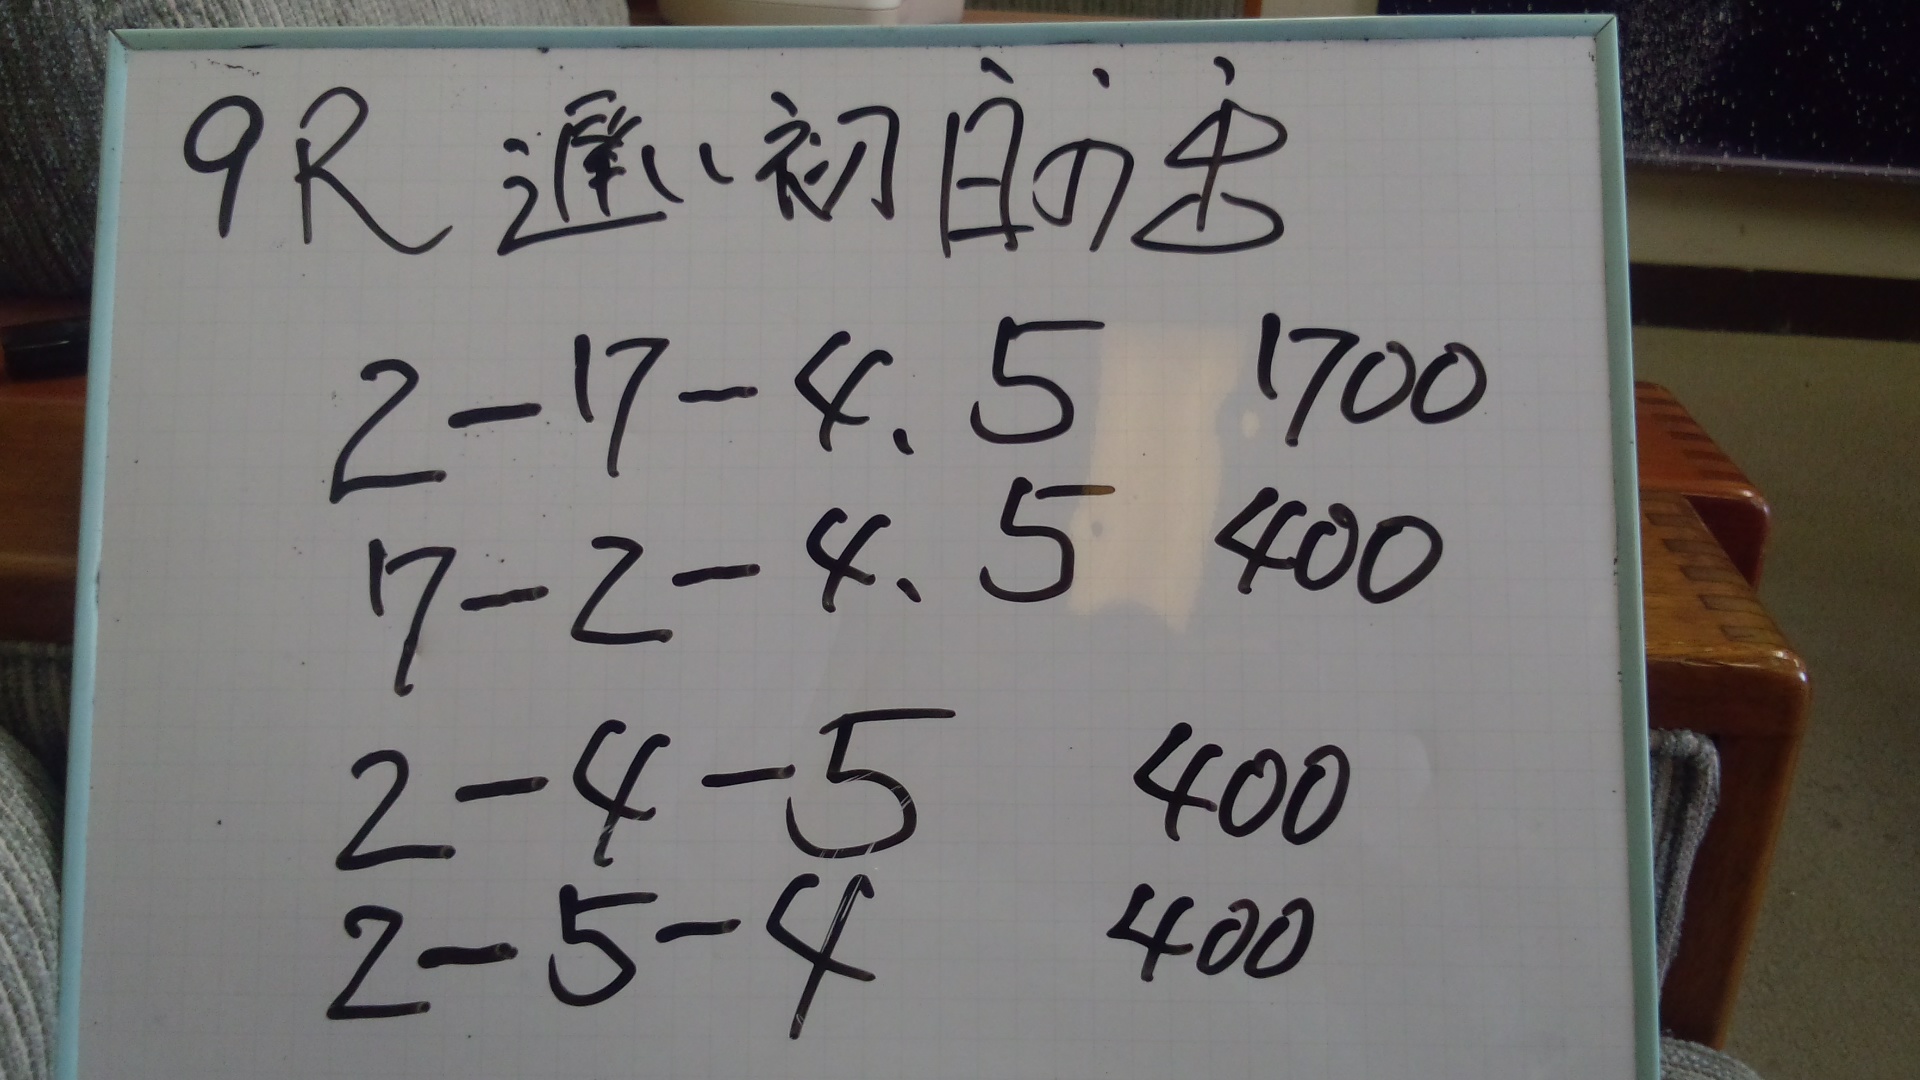 9R 遅い初日の出
2-7-4、5 1700
7-2-4、5 400
2-4-5 400
2-5-4 400